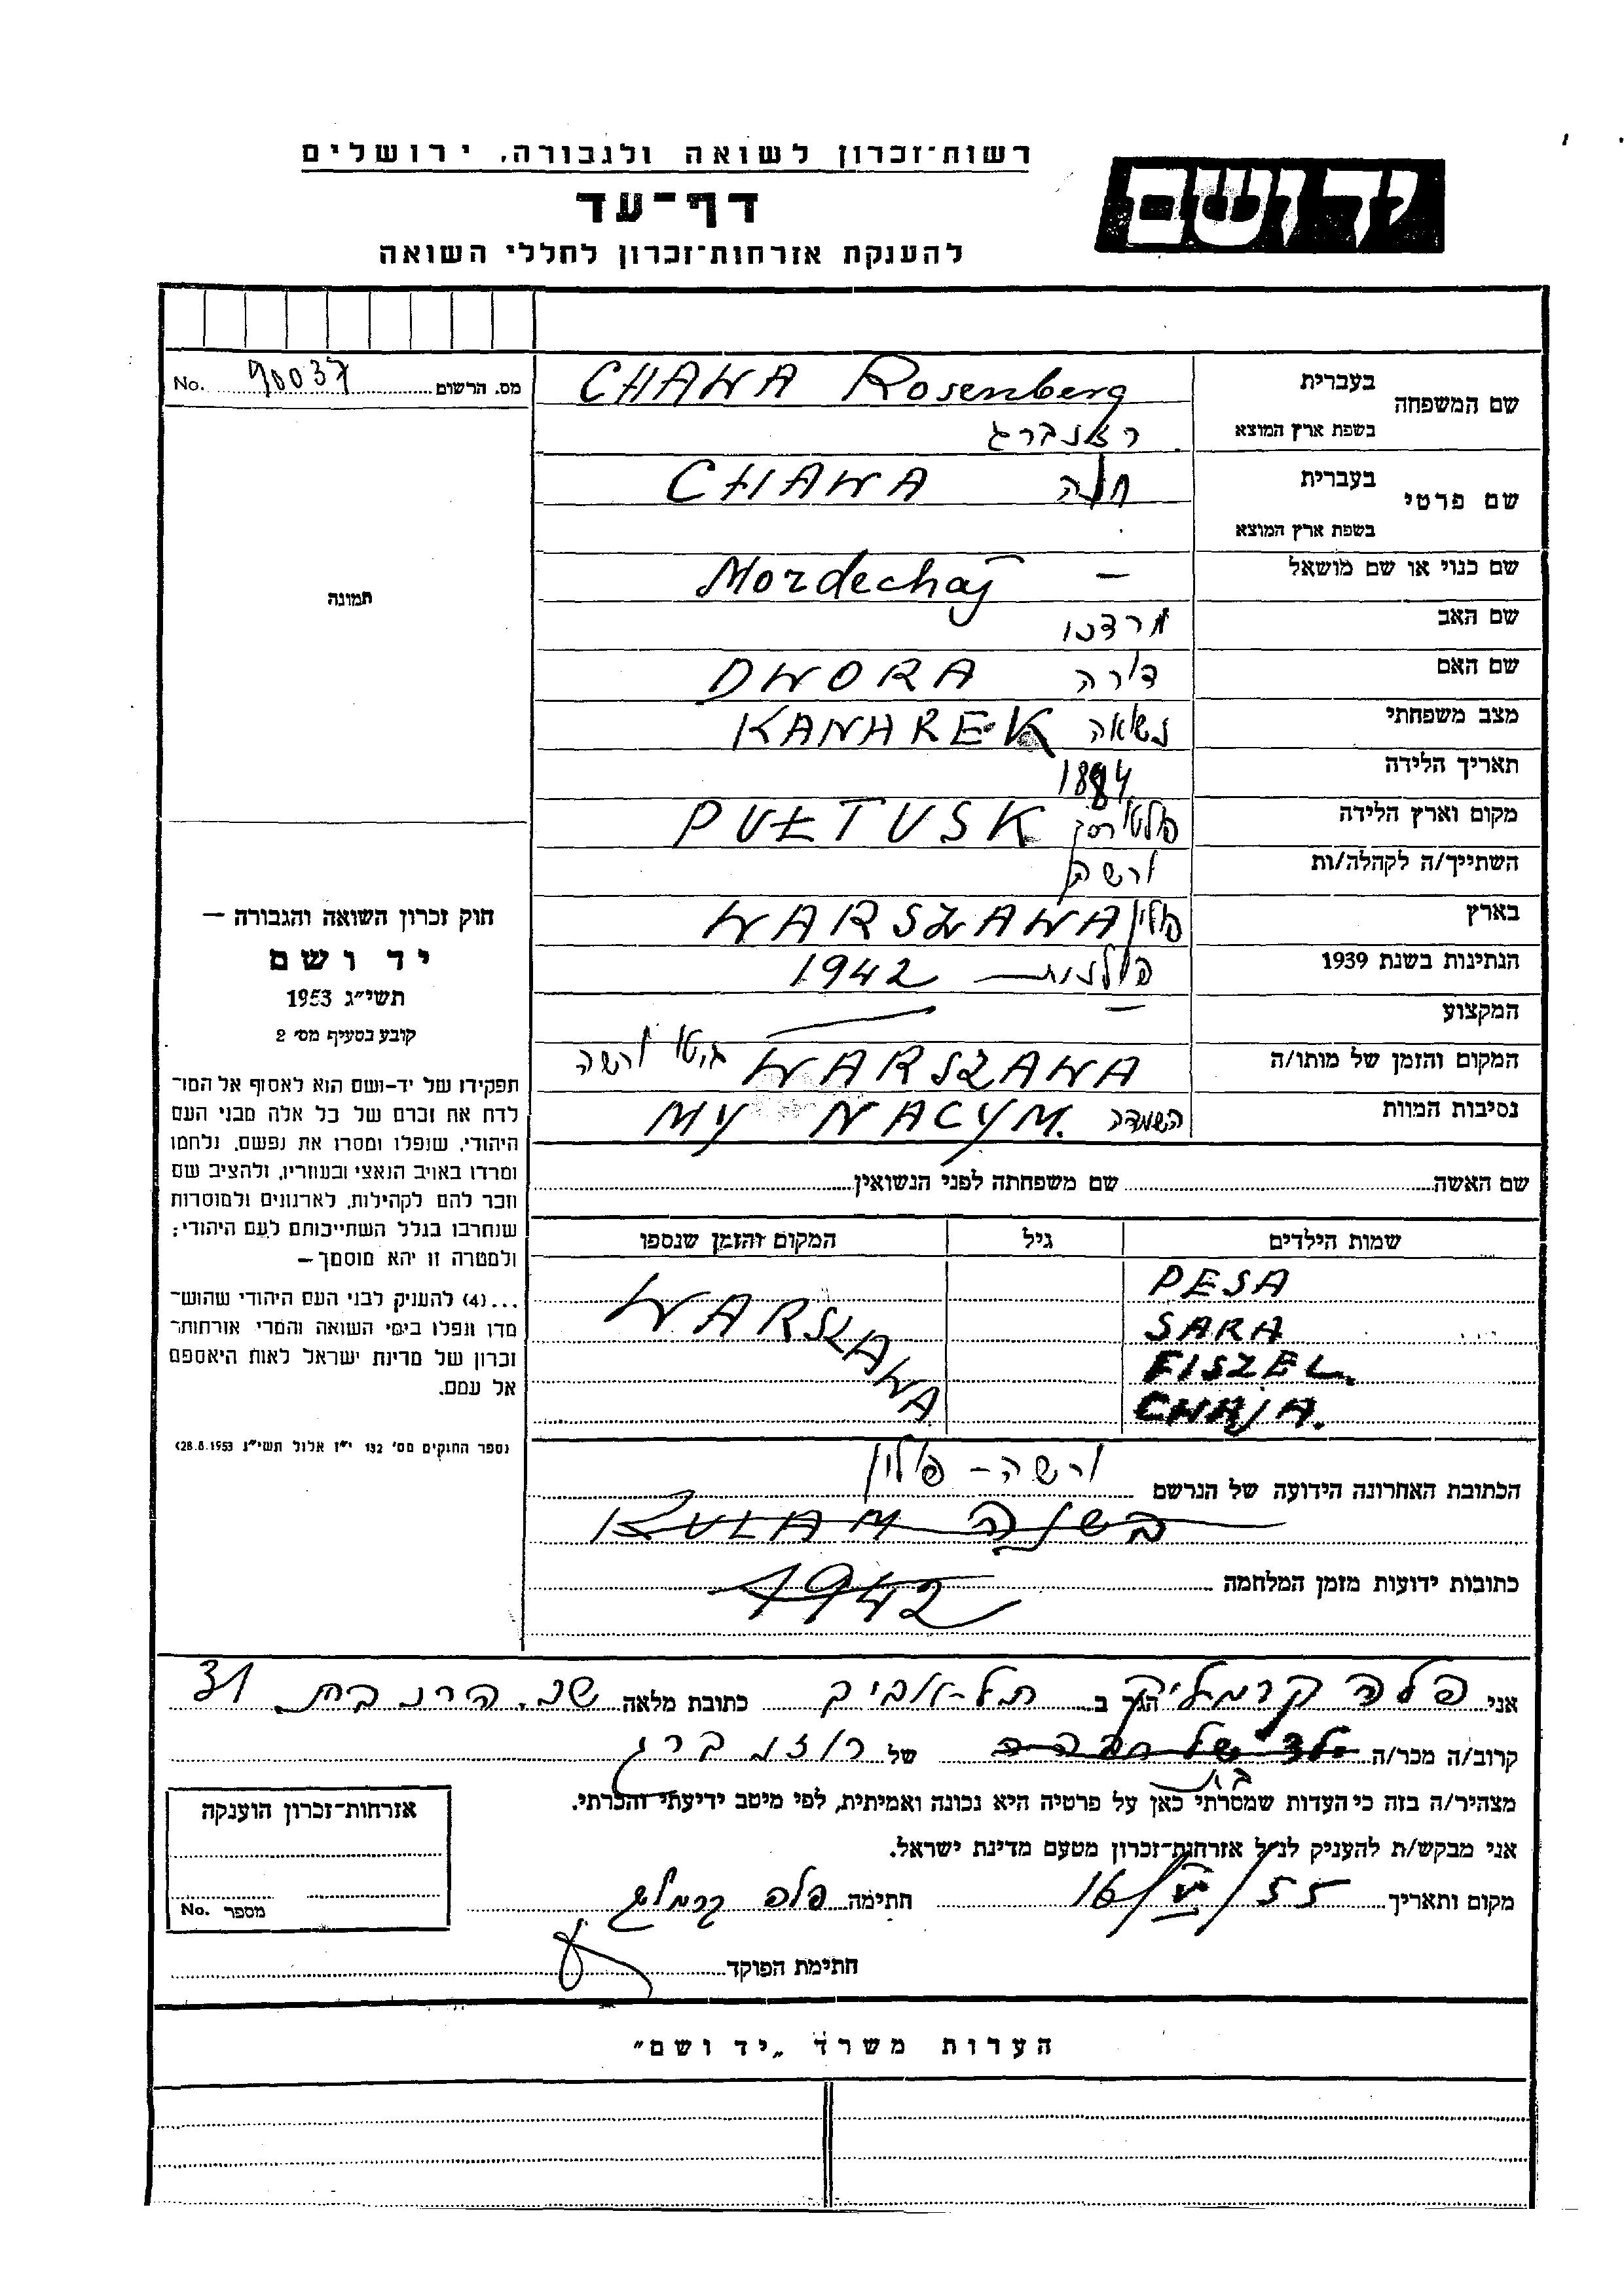 רשות־זכרון לשואה ולגבורה, ירושלים
יד ושם
דף־עד
להענקת אזרחות־זכרון לחללי השואה
No. 90037 מס. הרשום
תמונה
חוק זכרון השואה והגבורה —
יד ושם
תשי״ג 1953
קובע בסעיף מס׳ 2
תפקידו של יד-ושם הוא לאסוף אל המו־
לדת את זכרם של כל אלה מבני העם
היהודי, שנפלו ומסרו את נפשם, נלחמו
ומרדו באויב הנאצי ובעוזריו, ולהציב שם
וזכר להם לקהילות, לארגונים ולמוסדות
שנחרבו בגלל השתייכותם לעם היהודי;
ולמטרה זו יהא מוסמך —
...(4) להעניק לבני העם היהודי שהוש־
מדו ונפלו בימי השואה והמרי אזרחות־
זכרון של מדינת ישראל לאות היאספם
אל עמם.
(ספר החוקים מס׳ 132 י״ז אלול תשי״ג 28.8.1953)
שם המשפחה בעברית CHAWA Rosenberg
בשפת ארץ המוצא רוזנברג
שם פרטי בעברית חוה CHAWA
בשפת ארץ המוצא
שם כנוי או שם מושאל — Mordechaj
שם האב מרדכי
שם האם דורה DWORA
מצב משפחתי נשואה KANAREK
תאריך הלידה 1884
מקום וארץ הלידה פולטוסק PUŁTUSK
השתייך/ה לקהלה/ות ורשה
בארץ פולין WARSZAWA
הנתינות בשנת 1939 פולנית — 1942
המקצוע —
המקום והזמן של מותו/ה WARSZAWA גיטו ורשה
נסיבות המוות השמדה MY NACYM.
שם האשה שם משפחתה לפני הנשואין
שמות הילדים גיל המקום והזמן שנספו
PESA
SARA
FISZEL.
CHAJA.
WARSZAWA
הכתובת האחרונה הידועה של הנרשם ורשה - פולין
בשנה KULAM
כתובות ידועות מזמן המלחמה 1942
אני פלה קרמליק הגר ב תל-אביב כתובת מלאה 31
קרוב/ה מכר/ה בת של רוזנברג
מצהיר/ה בזה כי העדות שמסרתי כאן על פרטיה היא נכונה ואמיתית, לפי מיטב ידיעתי והכרתי.
אני מבקש/ת להעניק לנ״ל אזרחות־זכרון מטעם מדינת ישראל.
מקום ותאריך חתימה פלה קרמליק
חתימת הפוקד
אזרחות־זכרון הוענקה
מספר No.
הערות משרד „יד ושם״